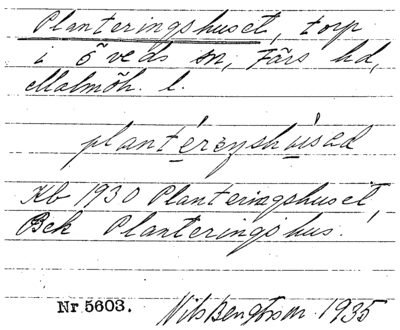 Planteringshuset, torp
i Öveds sn, Färs hd,
Malmöh. l.
plantéreṉshúsed
Kb 1930 Planteringshuset,
Bek Planteringshus.
Nr 5603. Nils Bengtsson 1935